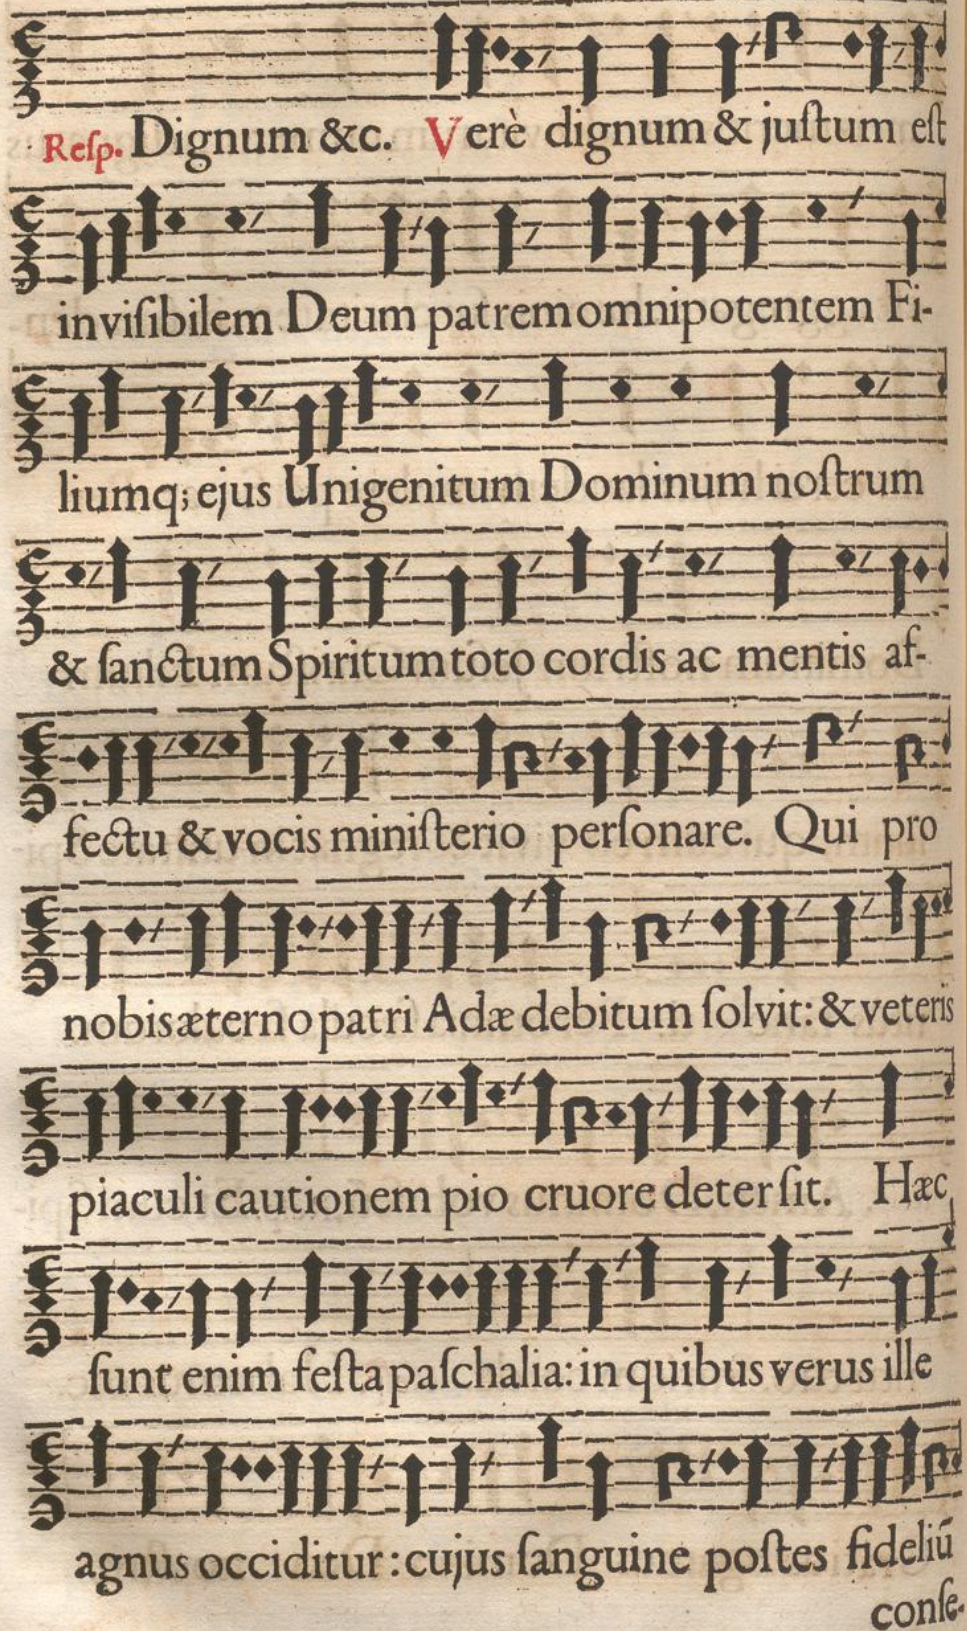 Reſp. Dignum &c. Verè dignum & juſtum eſt
inviſibilem Deum patrem omnipotentem Fi-
liumq; ejus Unigenitum Dominum noſtrum
& ſanctum Spiritum toto cordis ac mentis af-
fectu & vocis miniſterio perſonare. Qui pro
nobis æterno patri Adæ debitum ſolvit: & veteris
piaculi cautionem pio cruore deterſit. Hæc
ſunt enim feſta paſchalia: in quibus verus ille
agnus occiditur: cujus ſanguine poſtes fideliū
conſe-